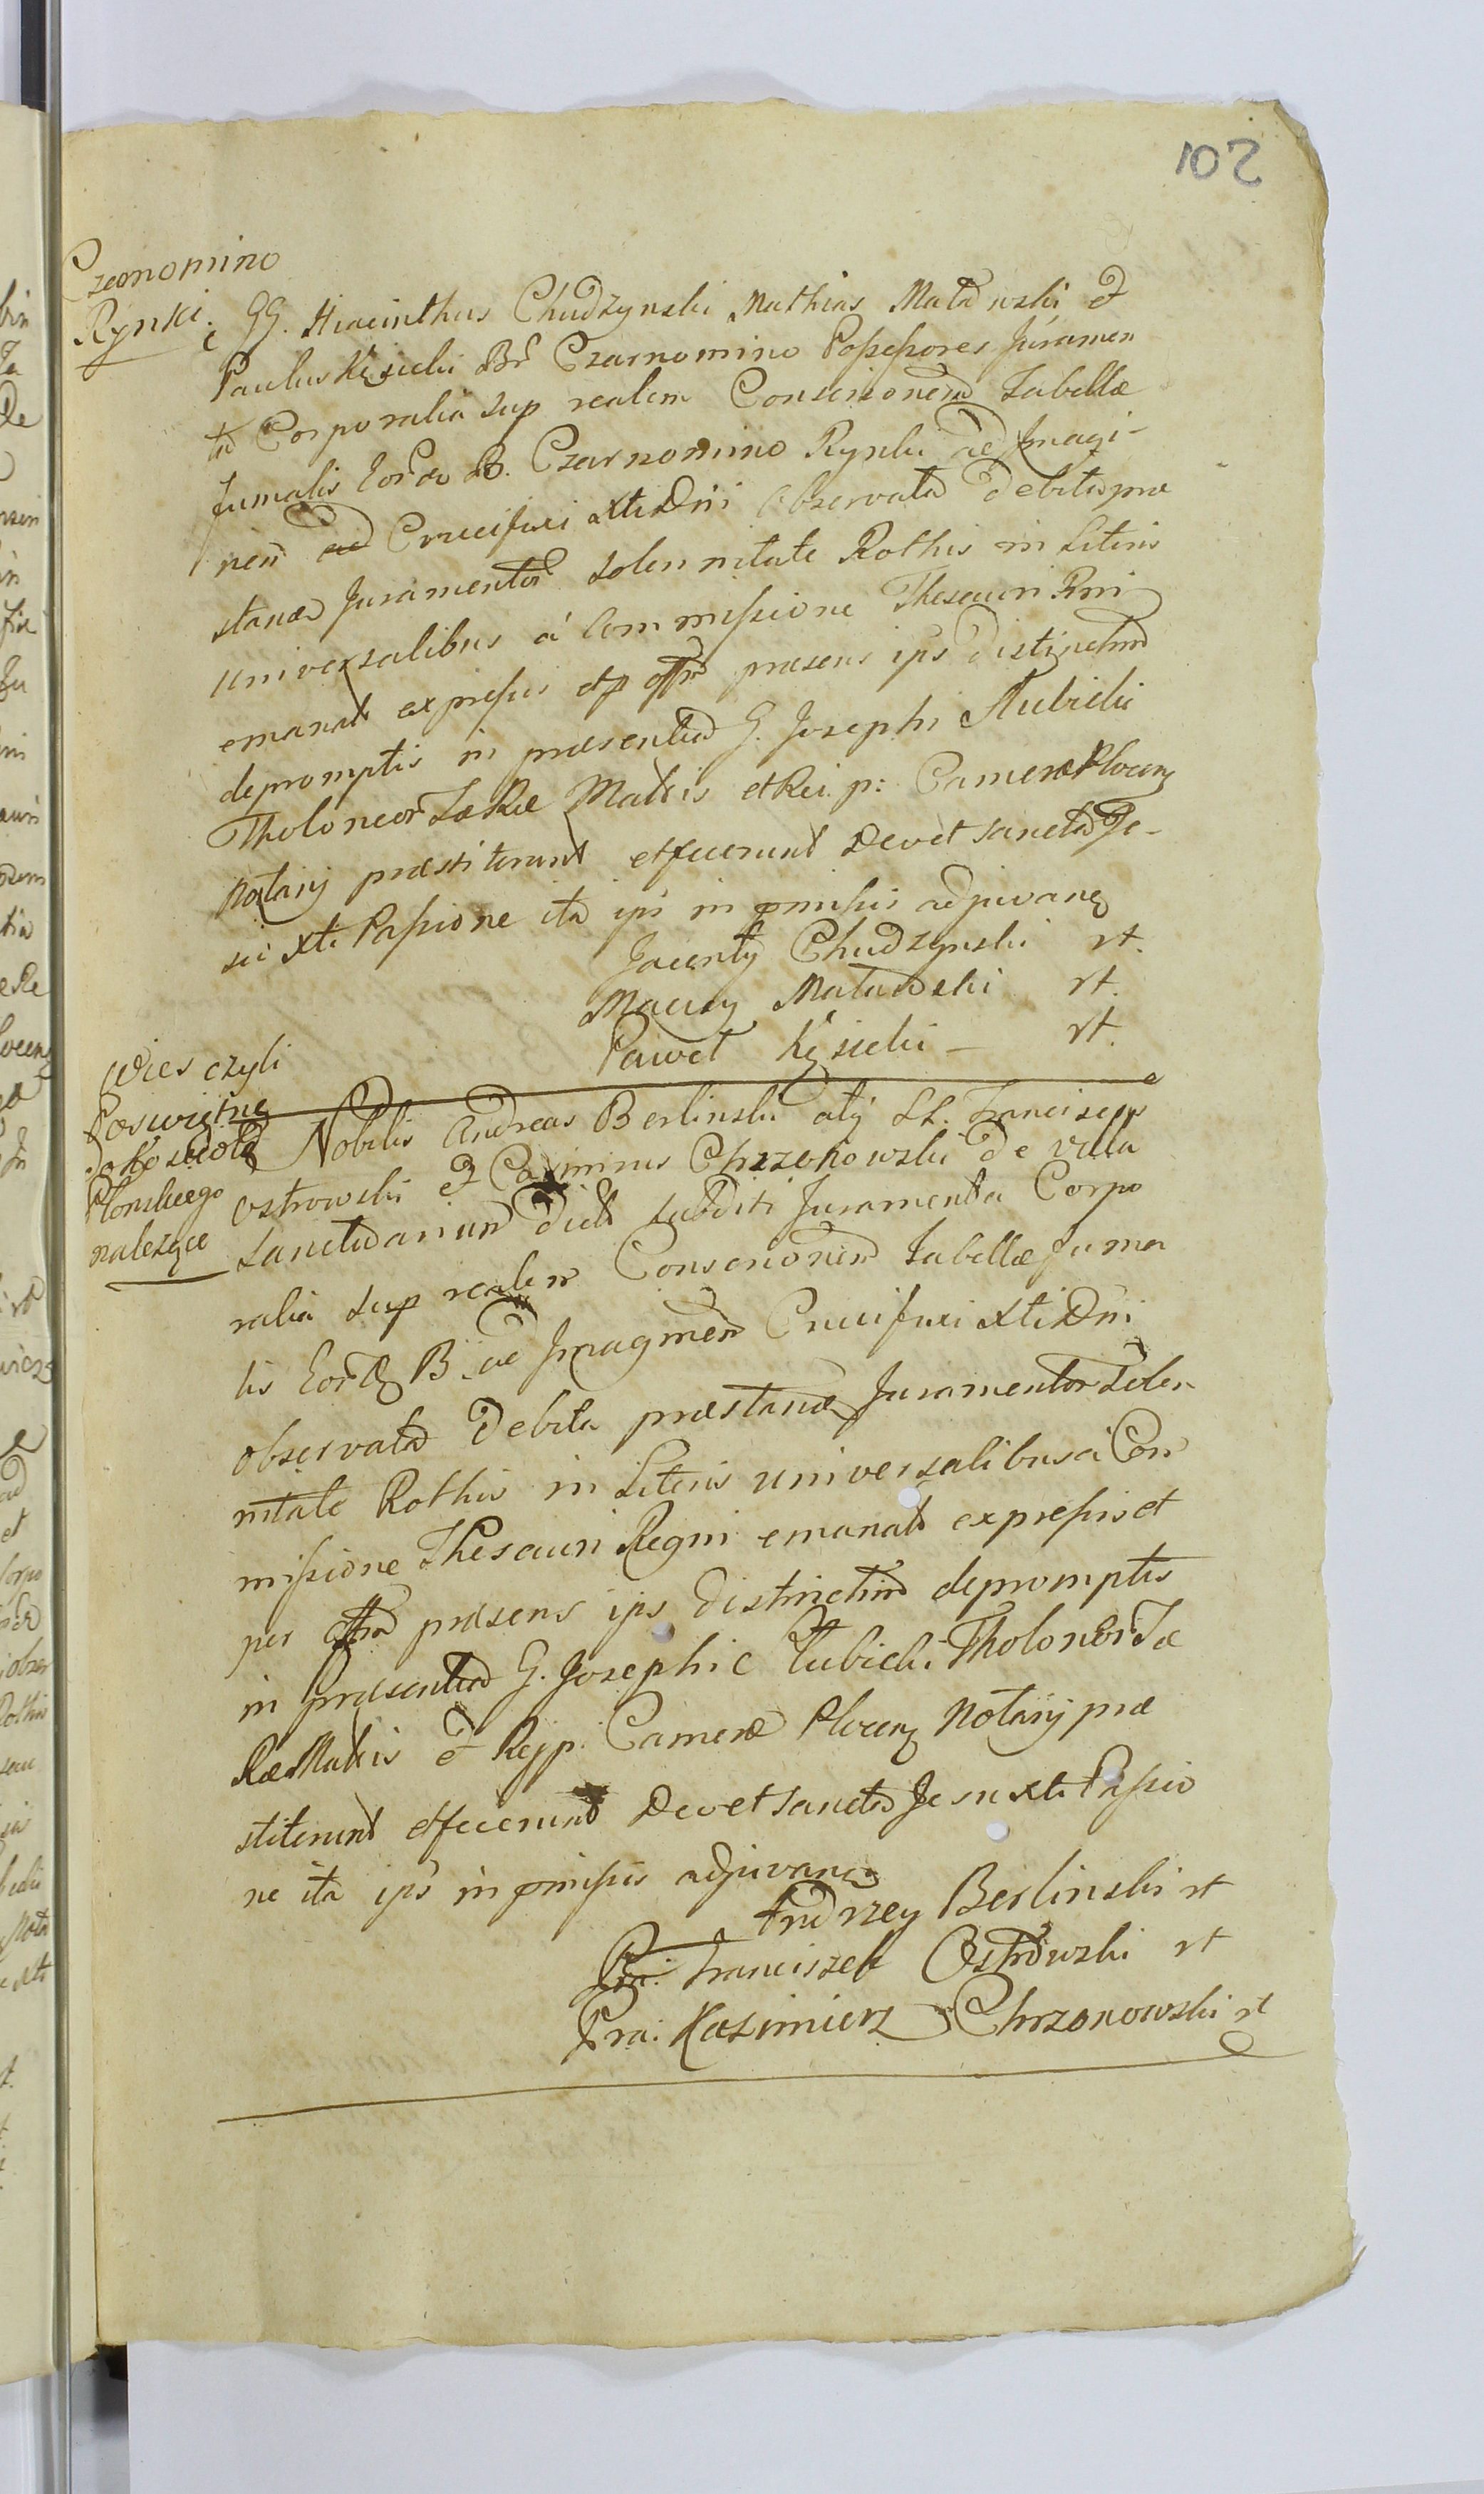 102
Czarnomino
Rynki.
GG. Hiacinthus Chudzynski Mathias Matuski et
Paulus Kęsicki Br Czarnomino Possessores Juramen
ta Corporalia sup realem Conscrionem Tabellæ
fumalis Eorda B. Czarnomino Rynki ad Imagi-
nem Crucifixi Xti Dni observata debita præ
standæ Juramentor solennitate Rothis in Literis
universalibus a Commissione Thesauri Rni
emanat expressis et p offm præsens ips distinctim
depromptis in præsentia G. Josephi Łubicki
Tholoneor Sæ Ræ Mattis et Rei p: Cameræ Plocen
Notarij præstiterunt et fecerunt Devet sancta Je-
su Xti Passione ita ips in pmissis adjuvan
Jacenty Chudzynski rt.
Maciey Matuski rt.
Paweł Kęsicki - rt.
Wies czyli
Poswiętne
do Koscioła
Płonskiego
nalezące
Nobilis Andreas Berlinski alij LL. Francisc
Ostrowski et Casimirus Chrzonowski de villa
Sanctuarium dict subditi Juramenta Corpo
ralia sup realem Conscrionem Tabellæ fuma
lis Eord B. ad Imaginem Crucifixi Xti Dni
observata debita præstand Juramentor Solen
nitate Rothis in Literis universalibus a Com
missione Thesauri Regni emanat expressis et
per offm præsens ips distinctim depromptis
in præsentia G. Josephi Łubicki Tholoneor Sæ
Ræ Mattis et Reip. Cameræ Plocen Notarij præ
stiterunt et fecerunt Devet sancta Jesu Xti Passio
ne ita ips in pmissis adjuvan
Andrzey Berlinski rt
Pra: Franciszek Ostrowski rt
Pra: Kazimierz Chrzonowski rt